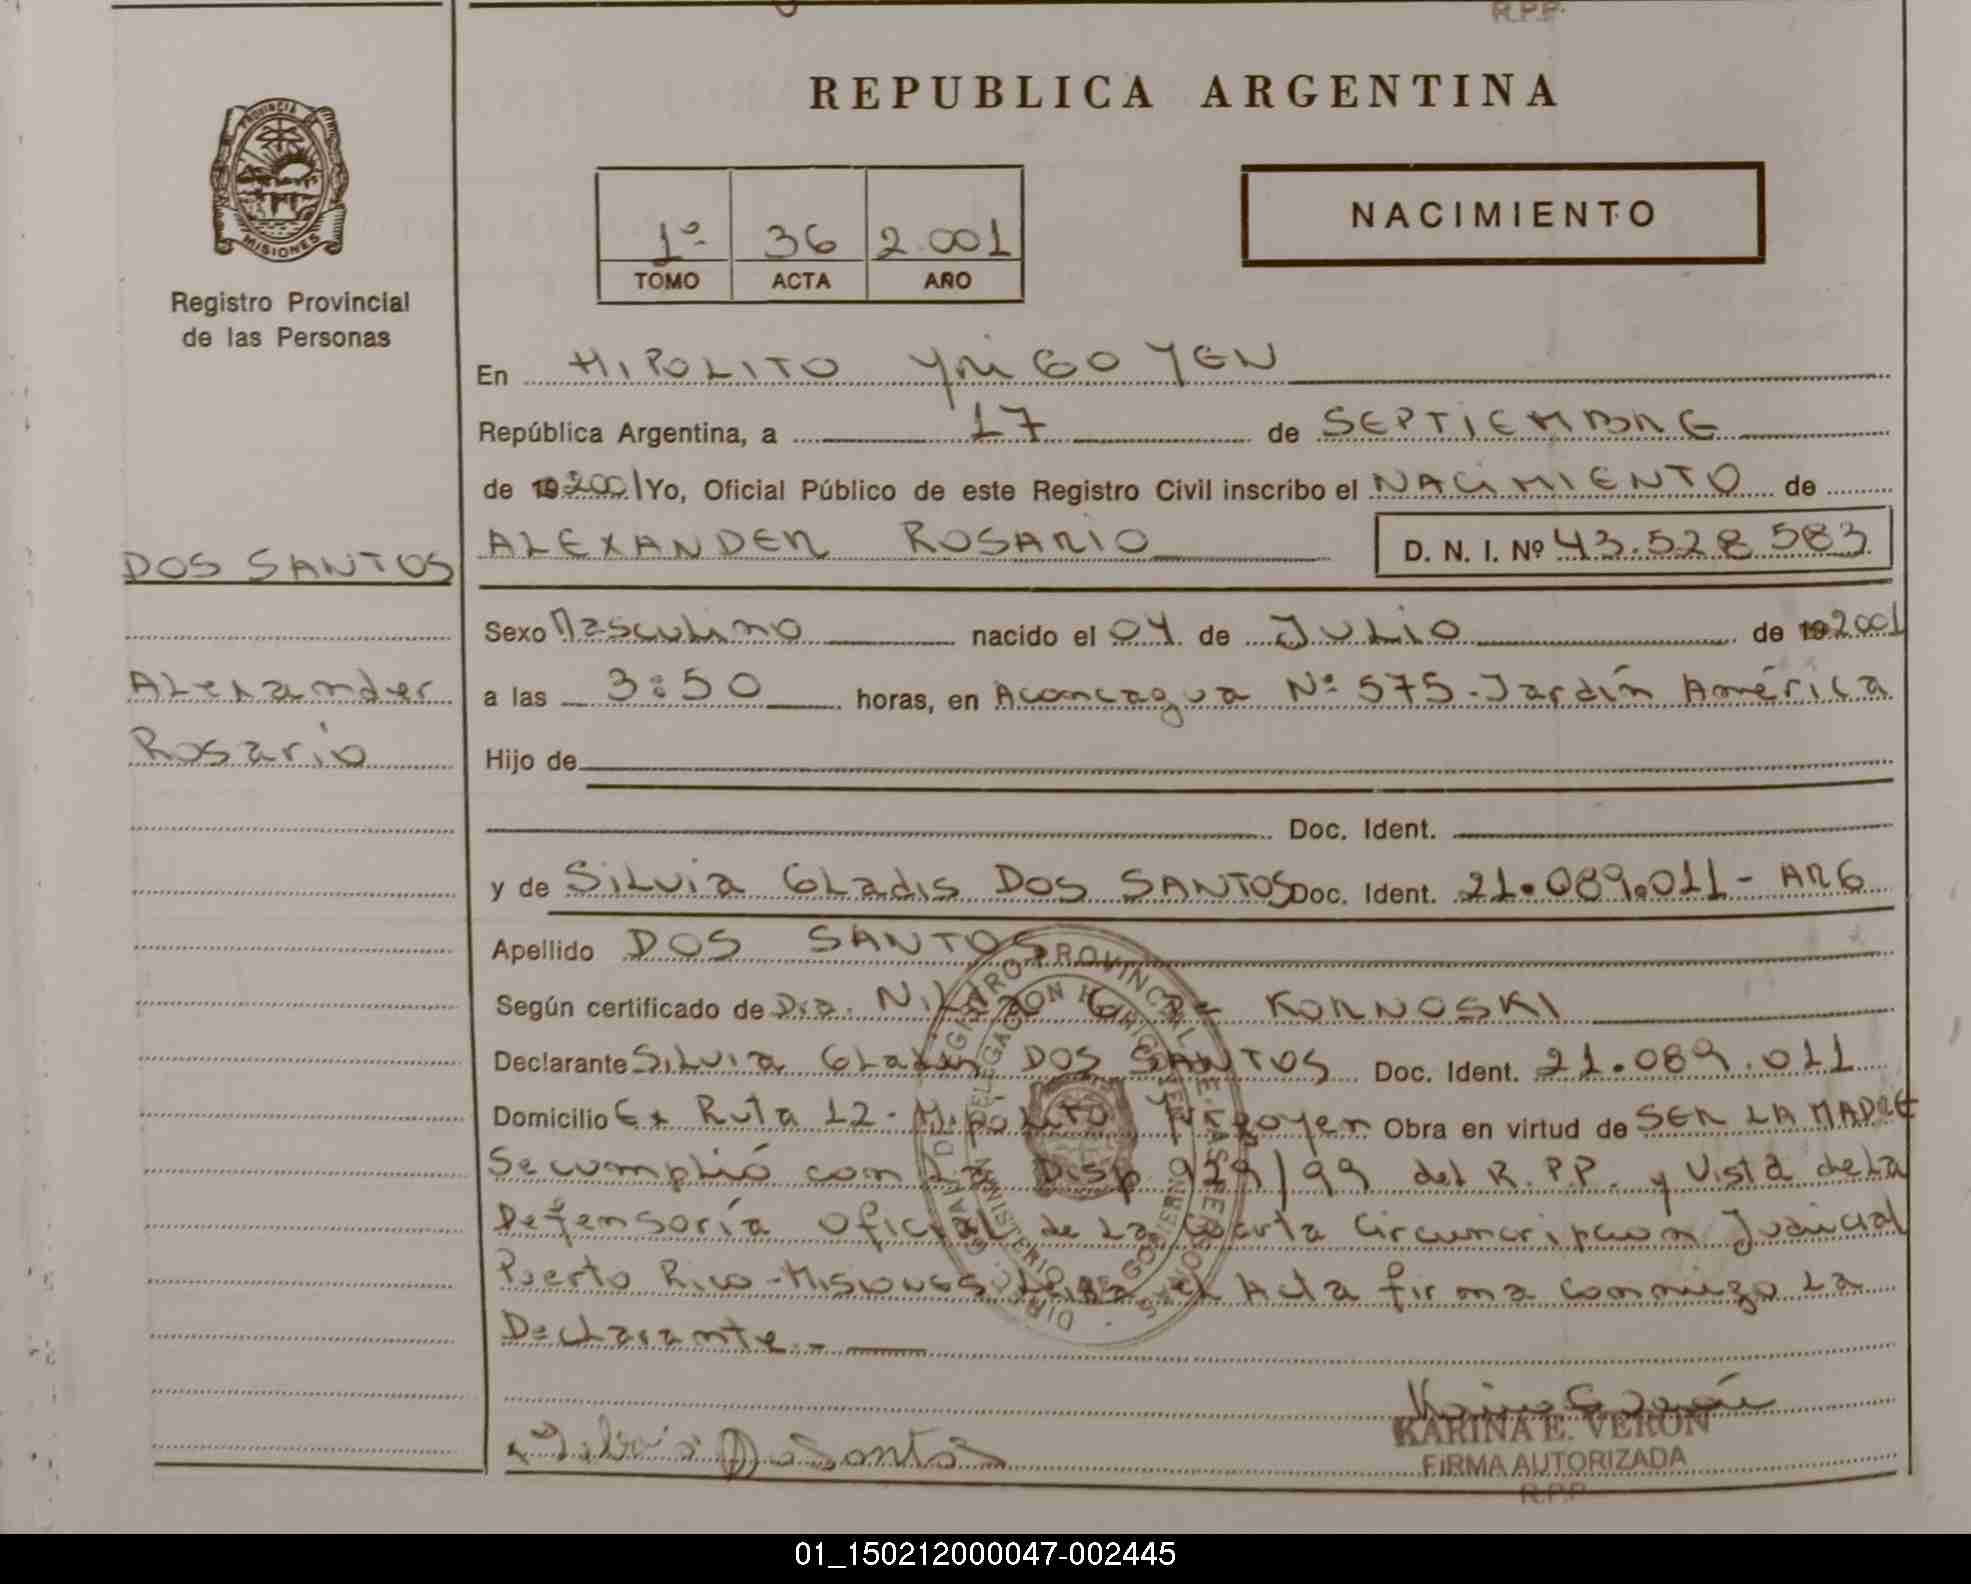 R.P.P.
REPUBLICA ARGENTINA
PROVINCIA DE
MISIONES
Registro Provincial
de las Personas
1º 36 2.001
TOMO ACTA AÑO
NACIMIENTO
En HIPOLITO YRIGOYEN
República Argentina, a 17 de SEPTIEMBRE
de 19 2001 Yo, Oficial Público de este Registro Civil inscribo el NACIMIENTO de
ALEXANDER ROSARIO D. N. I. Nº 43.528.583
DOS SANTOS
Alexander
Rosario
Sexo Masculino nacido el 04 de JULIO de 19 2001
a las 3:50 horas, en Aconcagua Nº 575 - Jardín América
Hijo de
Doc. Ident.
y de Silvia Gladis DOS SANTOS Doc. Ident. 21.089.011 - ARG
Apellido DOS SANTOS
Según certificado de Dra. Nilda G. de KORNOSKI
Declarante Silvia Gladis DOS SANTOS Doc. Ident. 21.089.011
Domicilio Ex Ruta 12 - Hipolito Yrigoyen Obra en virtud de SER LA MADRE
Se cumplió con la Disp 929/99 del R.P.P. y Vista de la
Defensoría Oficial de La Cuarta Circuncripcion Judicial
Puerto Rico - MISIONES el Acta firma conmigo La
Declarante.-
Silvia Dos Santos
KARINA E. VERON
FIRMA AUTORIZADA
R.P.P.
01_150212000047-002445